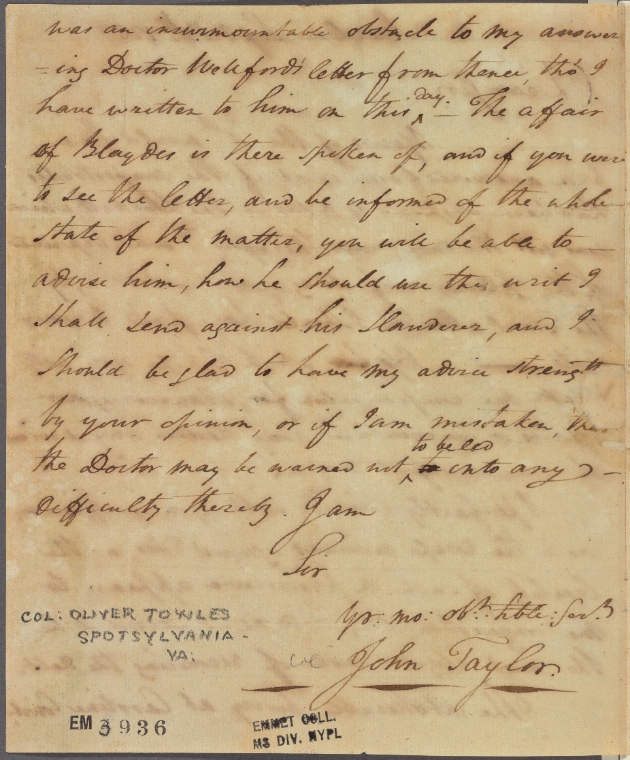 was an insurmountable obstacle to my answer
=ing Doctor Wellford's letter from thence, tho' I
have written to him on this ^day. – The affair
of Blaydes is there spoken of, and if you were
to see the letter, and be informed of the whole
state of the matter, you will be able to –
advise him, how he should use the writ I
shall send against his slanderer, and I
should be glad to have my advice strength
by your opinion, or if I am mistaken, that
the Doctor may be warned not ^to be led into any –
difficulty thereby. I am
Sir
Yr. mo: obt. hble: Sert.
John Taylor.
COL: OLIVER TOWLES
SPOTSYLVANIA -
VA:
Col
EM 3936
EMMET COLL.
MS DIV. NYPL